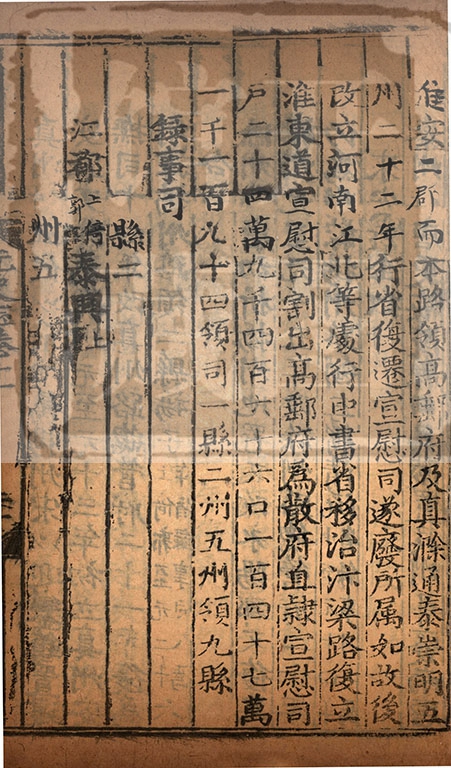 淮安二郡而本路領高郵府及真滁通泰崇明五
州二十二年行省復遷宣慰司遂廢所属如故後
改立河南江北等處行中書省移治汴梁路復立
淮東道宣慰司割出高郵府為散府直隷宣慰司
戶二十四萬九千四百六十六口一百四十七萬
一千一百九十四領司一縣二州五州領九縣
錄事司
縣二
江都上倚郭泰興上
州五